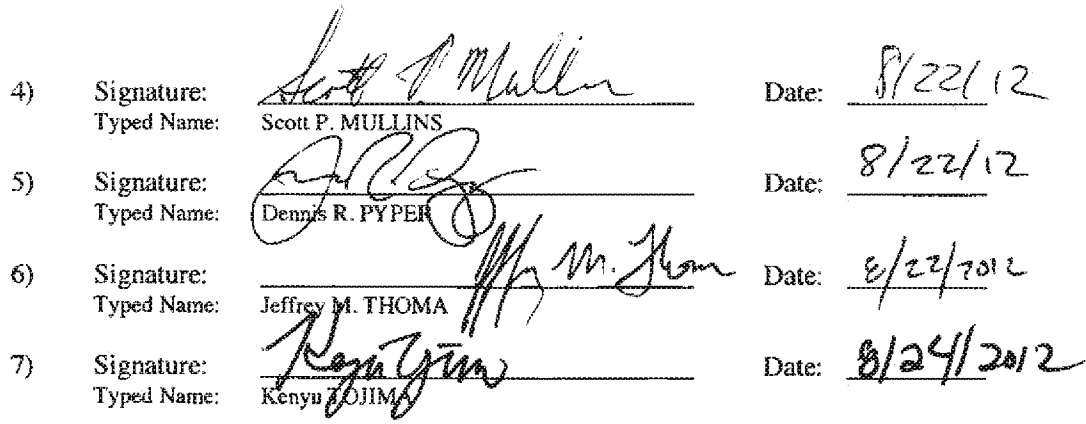 4) Signature: Scott P. Mullins Date: 8/22/12
Typed Name: Scott P. MULLINS
5) Signature: Date: 8/22/12
Typed Name: Dennis R. PYPER
6) Signature: M. Thoma Date: 8/22/2012
Typed Name: Jeffrey M. THOMA
7) Signature: Date: 8/24/2012
Typed Name: Kenyu TOJIMA